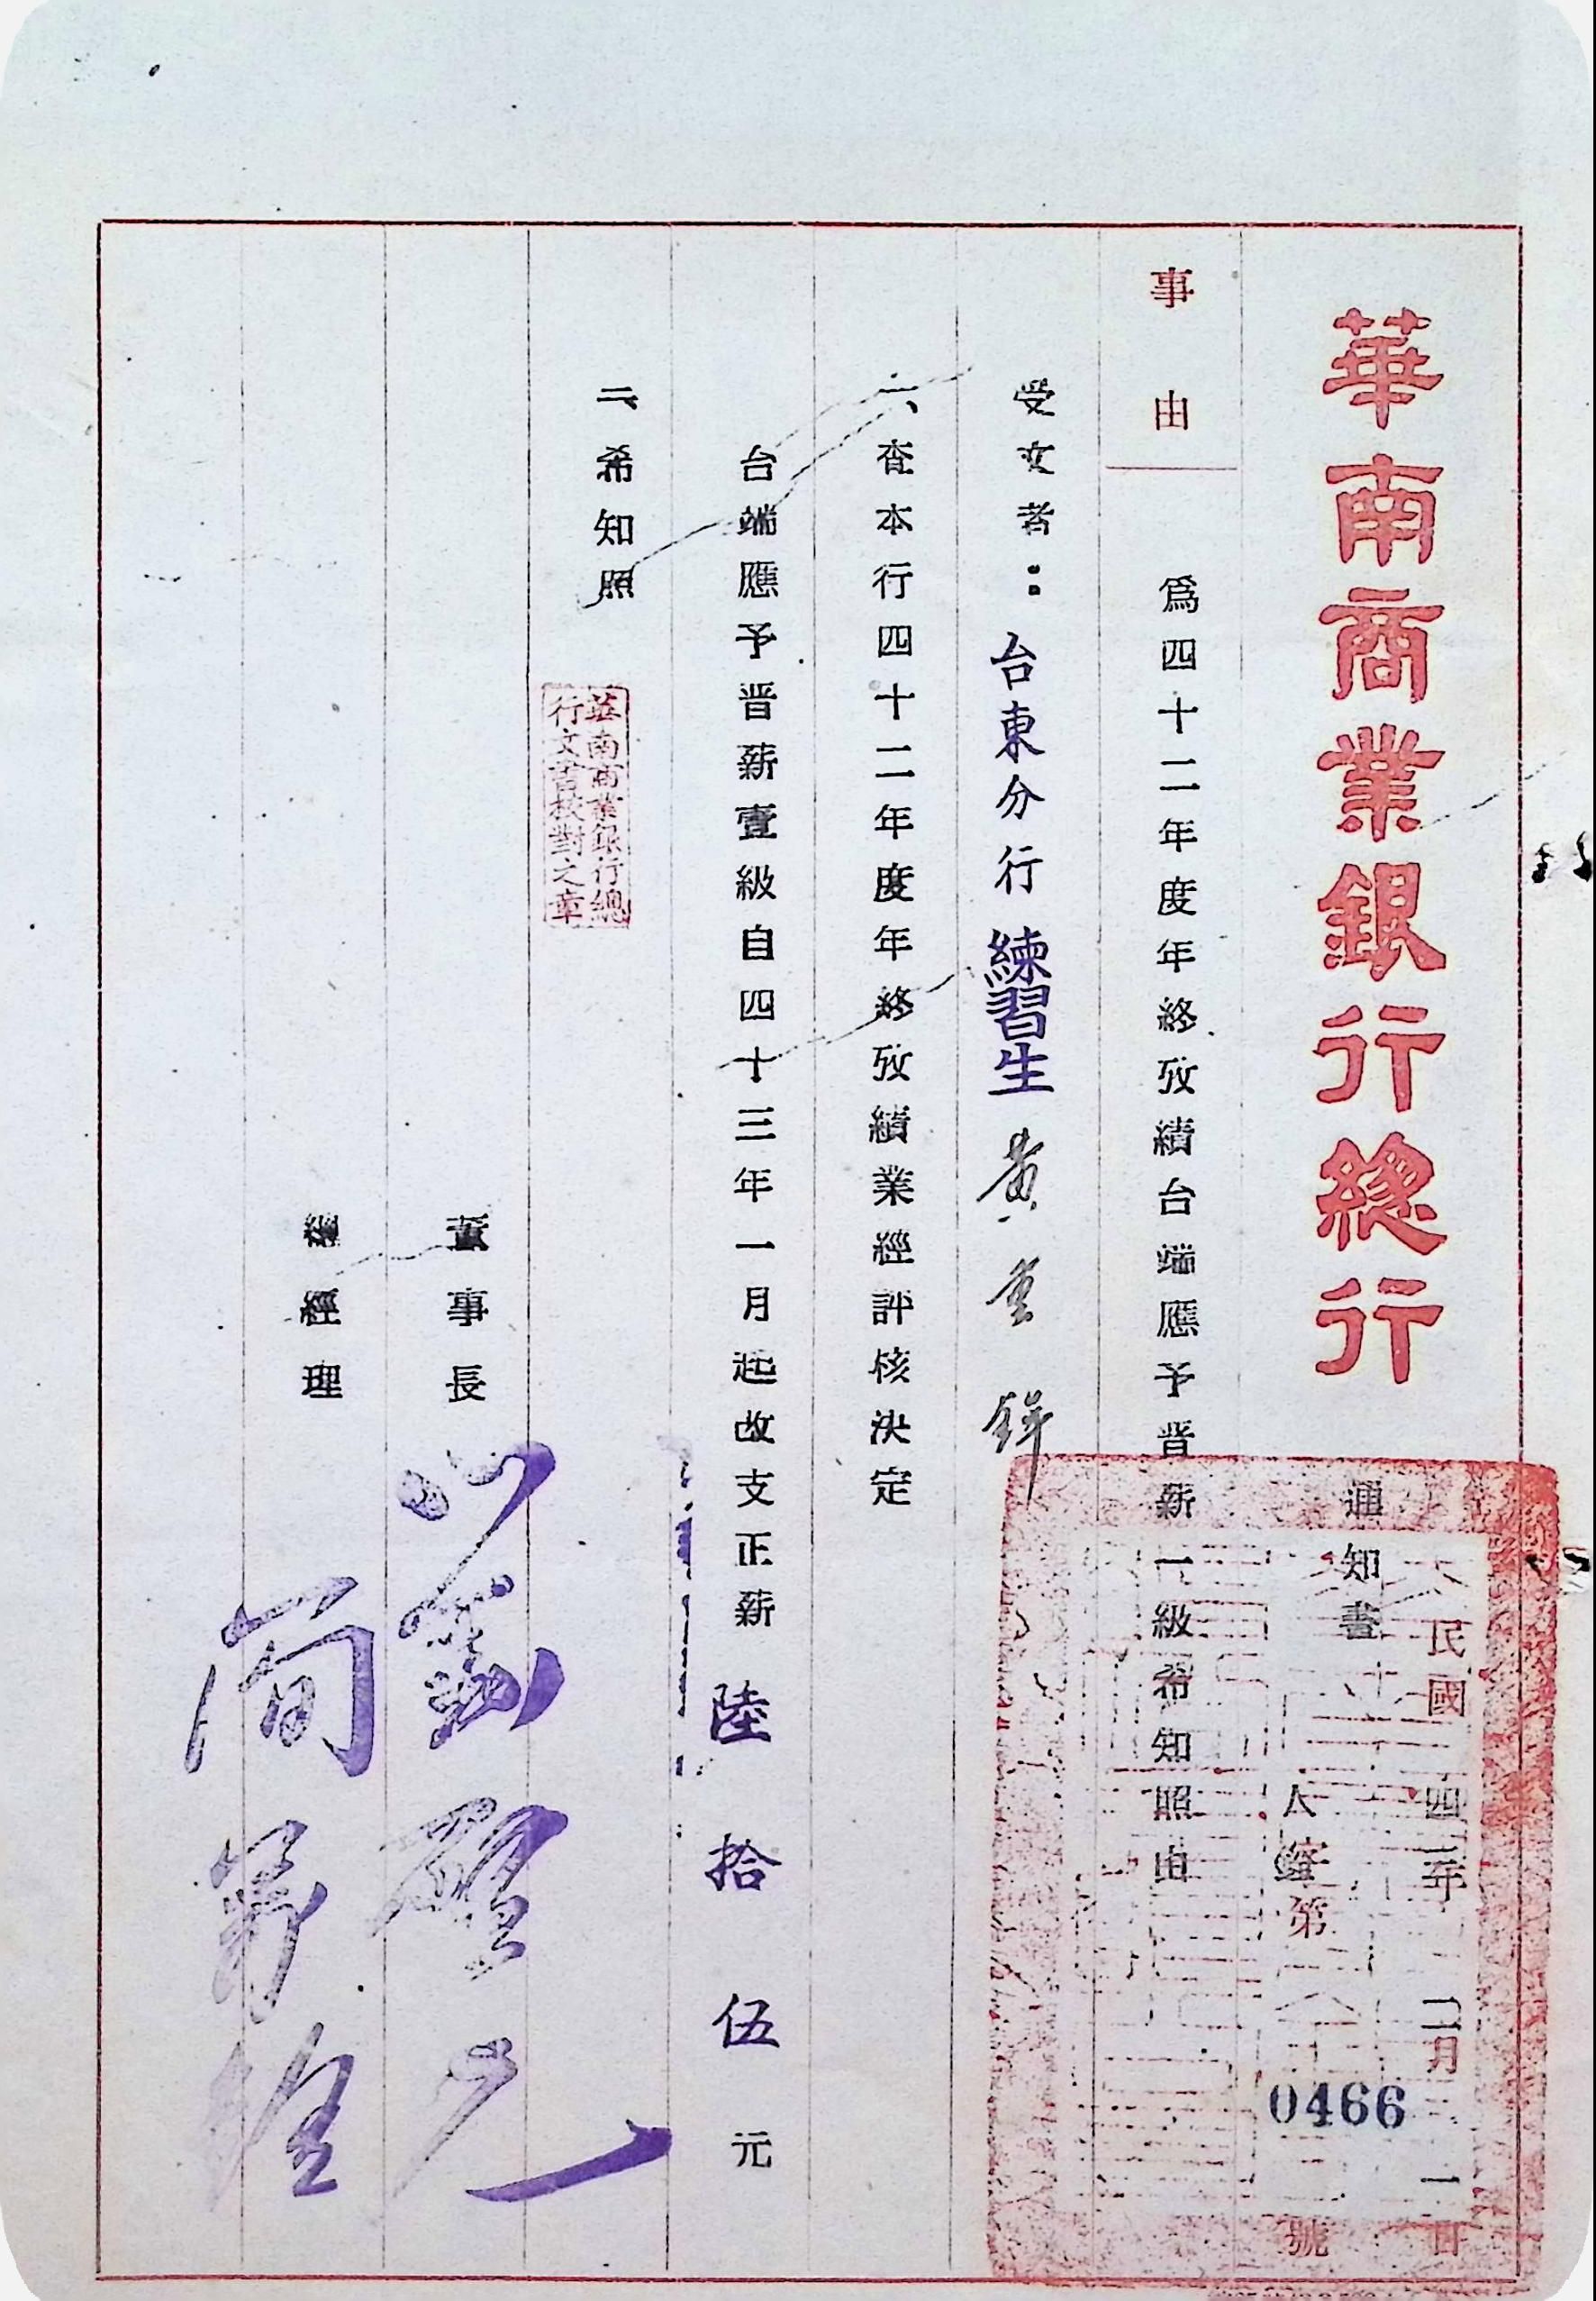 華南商業銀行總行
通知書
民國四三年二月三一日
人壇第0466號
事由 為四十二年度年終攷績台端應予晋薪一級希知照由
受文者：台東分行 練習生 黃重鋒
一、查本行四十二年度年終攷績業經評核決定
台端應予晋薪壹級自四十三年一月起改支正薪陸拾伍元
二、希知照
華南商業銀行總
行文書校對之章
董事長 劉啓光
總經理